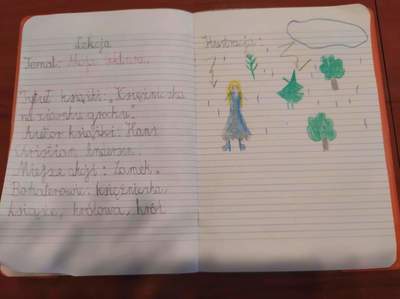 Lekcja
Temat: Moja lektura.
Tytuł książki: „Księżniczka
na ziarnku grochu".
Autor książki: Hans
Christian Andersen.
Miejsce akcji: Zamek.
Bohaterowie: księżniczka,
książę, królowa, król
Ilustracja: